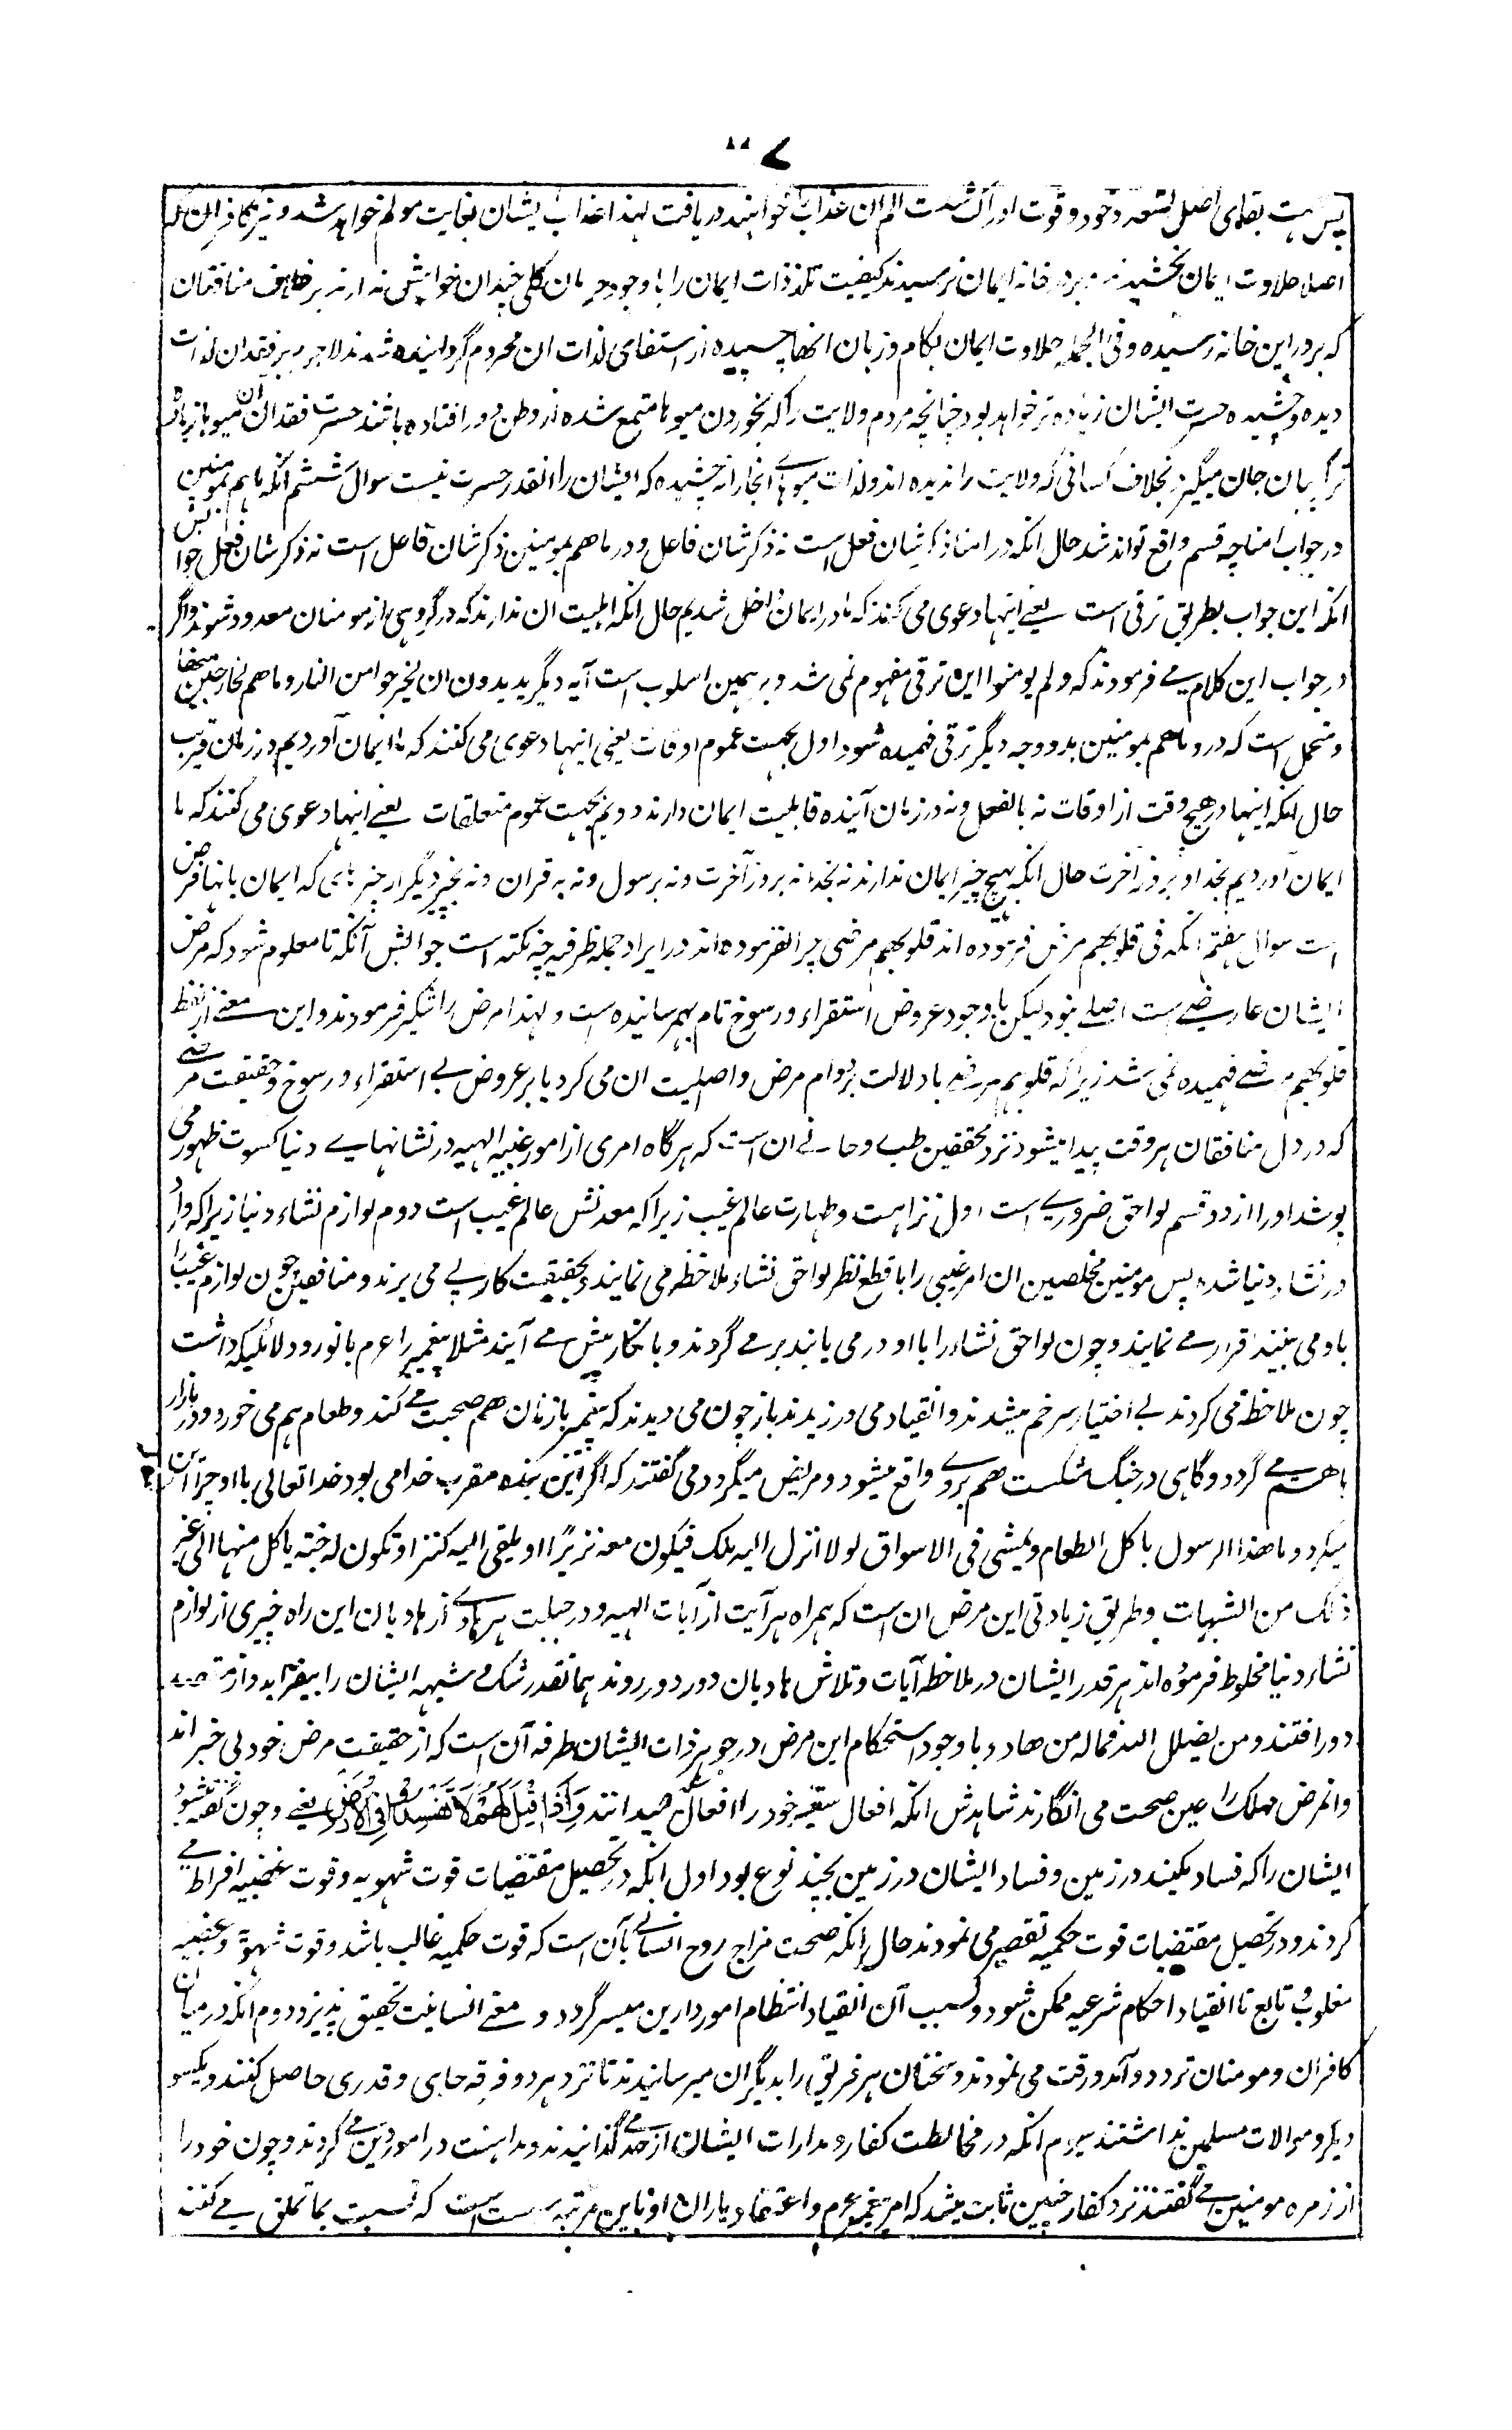 پس بہت بقای اصل شعور خود و قوت ادراک شدت الم ان عذاب خواہند دریافت لہذا عذاب یشان بغایت مولم خواہد شد و نیز کافران
اصلا حلاوت ایمان نچشیدند و بر در خانہ ایمان نرسیدند کیفیت تلذذات ایمان را با وجود حرمان کلی چندان خواہش ندارند بر خلاف منافقان
کہ بر در این خانہ رسیدہ و فی الجملہ حلاوت ایمان بکام و زبان انھا چسپیدہ از استفای لذات ان محروم گردانیدہ شدند لاجرم بر فقدان لذات
دیدہ و چشیدہ حسرت ایشان زیادہ تر خواہد بود چنانچہ مردم ولایت را کہ بخوردن میوہا متمتع شدہ از وطن دور افتادہ باشند حسرت فقدان آن میوہا
گریبان جان میگیرد بخلاف کسانی کہ ولایت را ندیدہ اند و لذات میوہاے انجا را نہ چشیدہ کہ ایشان را انقدر حسرت نیست سوال ششم آنکہ ما ہم بمومنین
در جواب امنا چہ قسم واقع تواند شد حال انکہ در امنا ذکر شان فعل است نہ ذکر شان فاعل و در ما ھم بمومنین ذکر شان فاعل است نہ ذکر شان فعل جوابش
انکہ این جواب بطریق ترقی است یعنے اینہا دعوی می کنند کہ ما در ایمان داخل شدیم حال انکہ اہلیت ان ندارند کہ در گروہی از مومنان معدود شوند و اگر
در جواب این کلام مے فرمودند کہ و لم یومنوا این ترقی مفہوم نمی شد و بر ہمین اسلوب است آیہ دیگر یریدون ان یخرجوا من النار و ما ھم بخارجین منھا
و محتمل است کہ در و ما ھم بمومنین بدو وجہ دیگر ترقی فہمیدہ شود اول بجہت عموم اوقات یعنی اینہا دعوی می کنند کہ ما ایمان آوردیم در زمان قریب
حال انکہ اینہا در ھیچ وقت از اوقات نہ بالفعل و نہ در زمان آیندہ قابلیت ایمان دارند دویم بجہت عموم متعلقات یعنے اینہا دعوی می کنند کہ ما
ایمان آوردیم بخدا و بروز آخرت حال انکہ بہیچ چیز ایمان ندارند نہ بخدا نہ بروز آخرت و نہ برسول و نہ بہ قران و نہ بچیز دیگر از چیزہای کہ ایمان بانہا فرض
است سوال ہفتم انکہ فی قلوبھم مرض فرمودہ اند قلوبھم مرضی چرا نفرمودہ اند در ایراد جملہ ظرفیہ چہ نکتہ است جوابش آنکہ تا معلوم شود کہ مرض
ایشان عارضے است اصلے نبود لیکن با وجود عروض استقراء و رسوخ تام بہم رسانیدہ است و لہذا مرض را نکیر فرمودند و این معنے از لفظ
قلوبھم مرضے فہمیدہ نمی شد زیرا کہ قلوبہم مرضی یا دلالت بر دوام مرض و اصلیت ان می کرد یا بر عروض بے استقراء و رسوخ و حقیقت مرضے
کہ در دل منافقان ہر وقت پیدا میشود نزد محققین طب روحانے ان است کہ ہر گاہ امری از امور غیبیہ الہیہ در نشانہاے دنیا کسوت ظہور می
پوشد اورا از دو قسم لواحق ضروری است اول نزاہت و طہارت عالم غیب زیرا کہ معدنش عالم غیب است دوم لوازم نشاء دنیا زیرا کہ وارد
در نشاء دنیا شدہ پس مومنین مخلصین ان امر غیبی را با قطع نظر لواحق نشاء ملاحظہ می نمایند و بحقیقت کار پے می برند و منافقین چون لوازم غیب را
با و می بینند اقرار مے نمایند و چون لواحق نشاء را با او در می یابند بر مے گردند و با نکار پیش مے آیند مثلا پیغمبر را عم با نور و دلائلیکہ داشت
چون ملاحظہ می کردند بے اختیار سر خم میشدند و انقیاد می ورزیدند باز چون می دیدند کہ پیغمبر با زنان ھم صحبت مے کند و طعام ہم می خورد و در بازار
ہا ھم مے گردد و گاہی در جنگ شکست ھم بروے واقع میشود و مریض میگردد می گفتند کہ اگر این بندہ مقرب خدا می بود خدا تعالی با او چرا این
میکرد و ما ھذا الرسول یاکل الطعام و یمشی فی الاسواق لولا انزل الیہ ملک فیکون معہ نذیرًا او یلقی الیہ کنز او تکون لہ جنتہ یاکل منھا الی غیر
ذلک من الشبہات و طریق زیادتی این مرض ان است کہ ہمراہ ہر آیت از آیات الہیہ و در جبلت ہر ہادے از ہادیان این راہ چیزی از لوازم
نشاء دنیا مخلوط فرمودہ اند ہر قدر ایشان در ملاحظہ آیات و تلاش ہادیان دور دور روند ہمانقدر شک و شبہہ ایشان را بیفزاید و از مقصد
دور افتند و من یضلل اللہ فما لہ من ھاد و با وجود استحکام این مرض در جوہر ذات ایشان طرفہ آن است کہ از حقیقت مرض خود بی خبر اند
و انمرض مہلک را عین صحت می انگارند شاہدش انکہ افعال سقیمہ خود را افعال میدانند وَاِذَا قِیْلَ لَھُمْ لَا تُفْسِدُوْا فِی الْاَرْضِ یعنے و چون گفتہ میشود
ایشان را کہ فساد مکنید در زمین و فساد ایشان در زمین بچند نوع بود اول انکہ در تحصیل مقتضیات قوت شہویہ و قوت غضبیہ افراط مے
کردند و در تحصیل مقتضیات قوت حکمیہ تقصیر می نمودند حال انکہ صحت مزاج روح انسانے بآن است کہ قوت حکمیہ غالب باشد و قوت شہویہ و غضبیہ
مغلوب و تابع تا انقیاد احکام شرعیہ ممکن شود و بسبب آن انقیاد انتظام امور دارین میسر گردد و معنے انسانیت تحقیق پذیرد دوم انکہ درمیان
کافران و مومنان تردد و آمد و رفت می نمودند و سخنان ہر فریق را بدیگران میرسانیدند تا نزد ہر دو فرقہ جای و قدری حاصل کنند و یکسو
دیگر و موالات مسلمین نداشتند سیوم انکہ در مخالطت کفار و مدارات ایشان از حد مے گذانیدند و مداہنت در امور دین مے کردند و چون خود را
از زمرہ مومنین مے گفتند نزد کفار چنین ثابت میشد کہ امر پیغمبر عم و اعتقاد یاران او باین مرتبہ سست است کہ نسبت بما تملق مے کنند